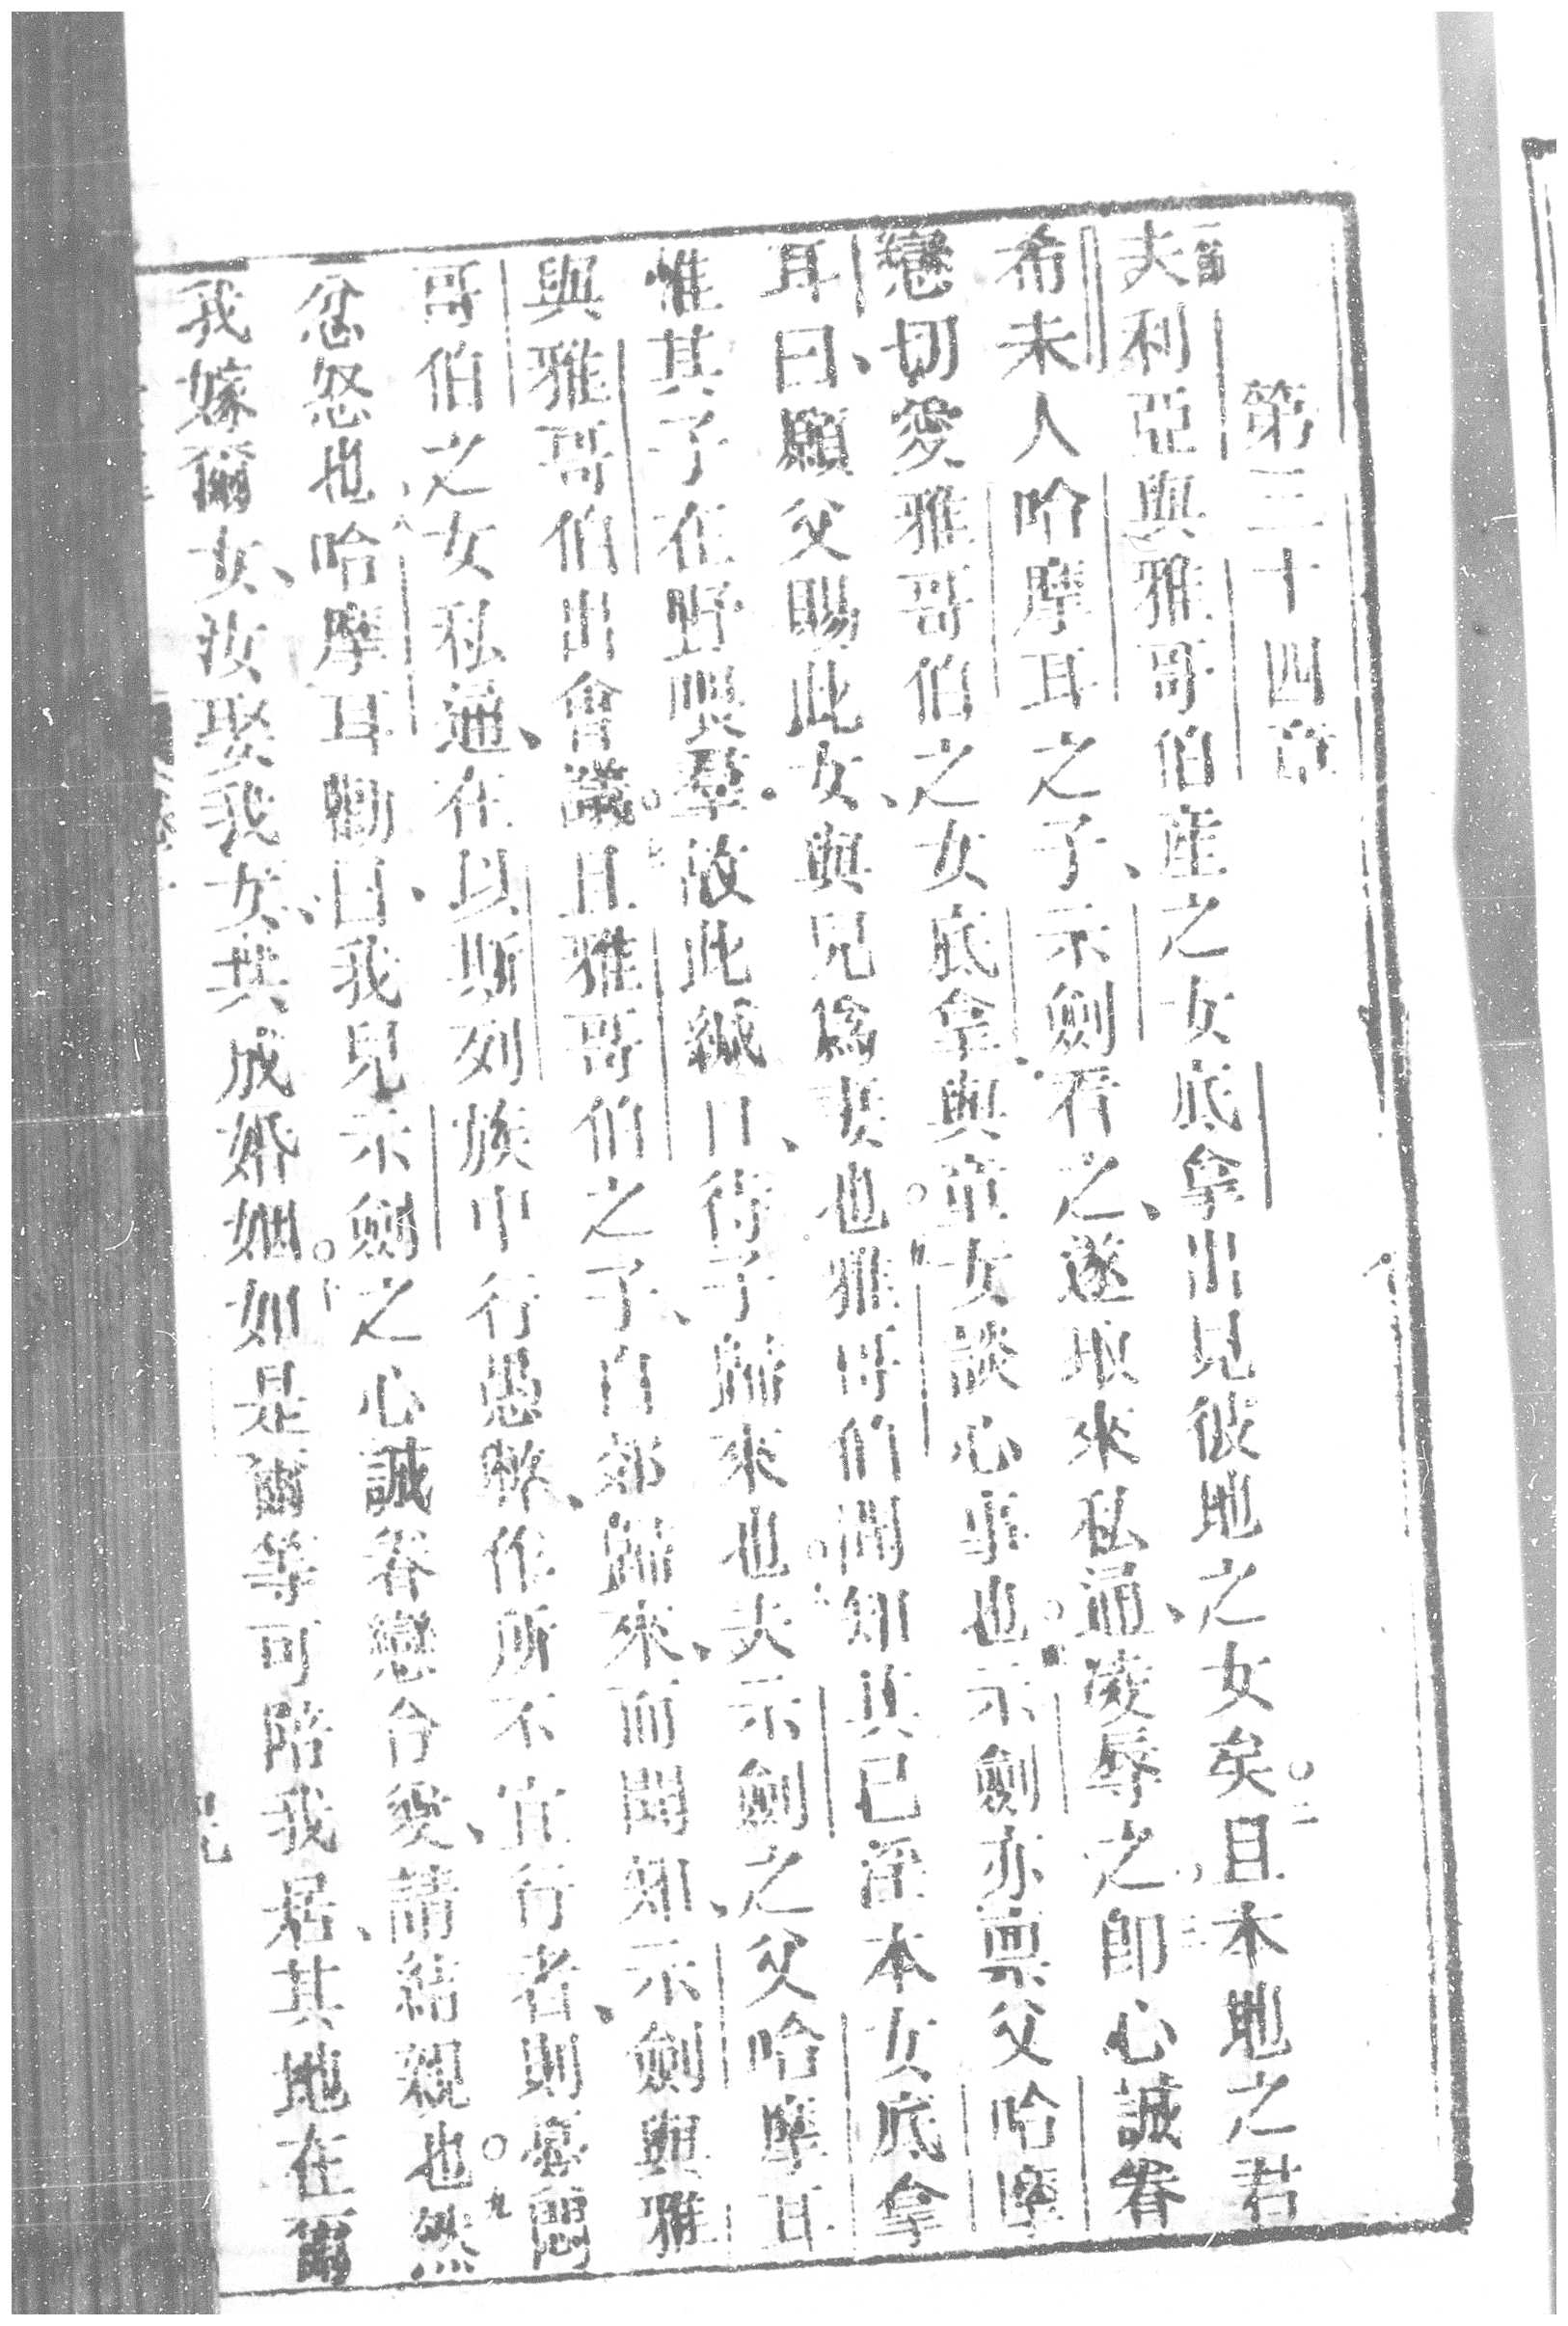 第三十四章
夫利亞與雅哥伯產之女底拿出見彼地之女矣○二且本地之君
希未人哈摩耳之子、示劍看之、遂取來私通、凌辱之三即心誠眷
戀切愛雅哥伯之女底拿、與童女談心事也○四示劍亦禀父哈摩
耳曰、願父賜此女、與兒爲妻也○五雅哥伯聞知其已淫本女底拿
惟其子在野喂羣、故此緘口、待子歸來也○六夫示劍之父哈摩耳
與雅哥伯出會議○七且雅哥伯之子、自郊歸來、而聞知、示劍與雅
哥伯之女私通、在以斯列族中行愚弊、作所不宜行者、則憂悶
忿怒也、八哈摩耳勸曰、我兒示劍之心誠眷戀合愛、請結親也○九然
我嫁爾女、汝娶我女、共成婚姻○十如是爾等可陪我居、其地在爾